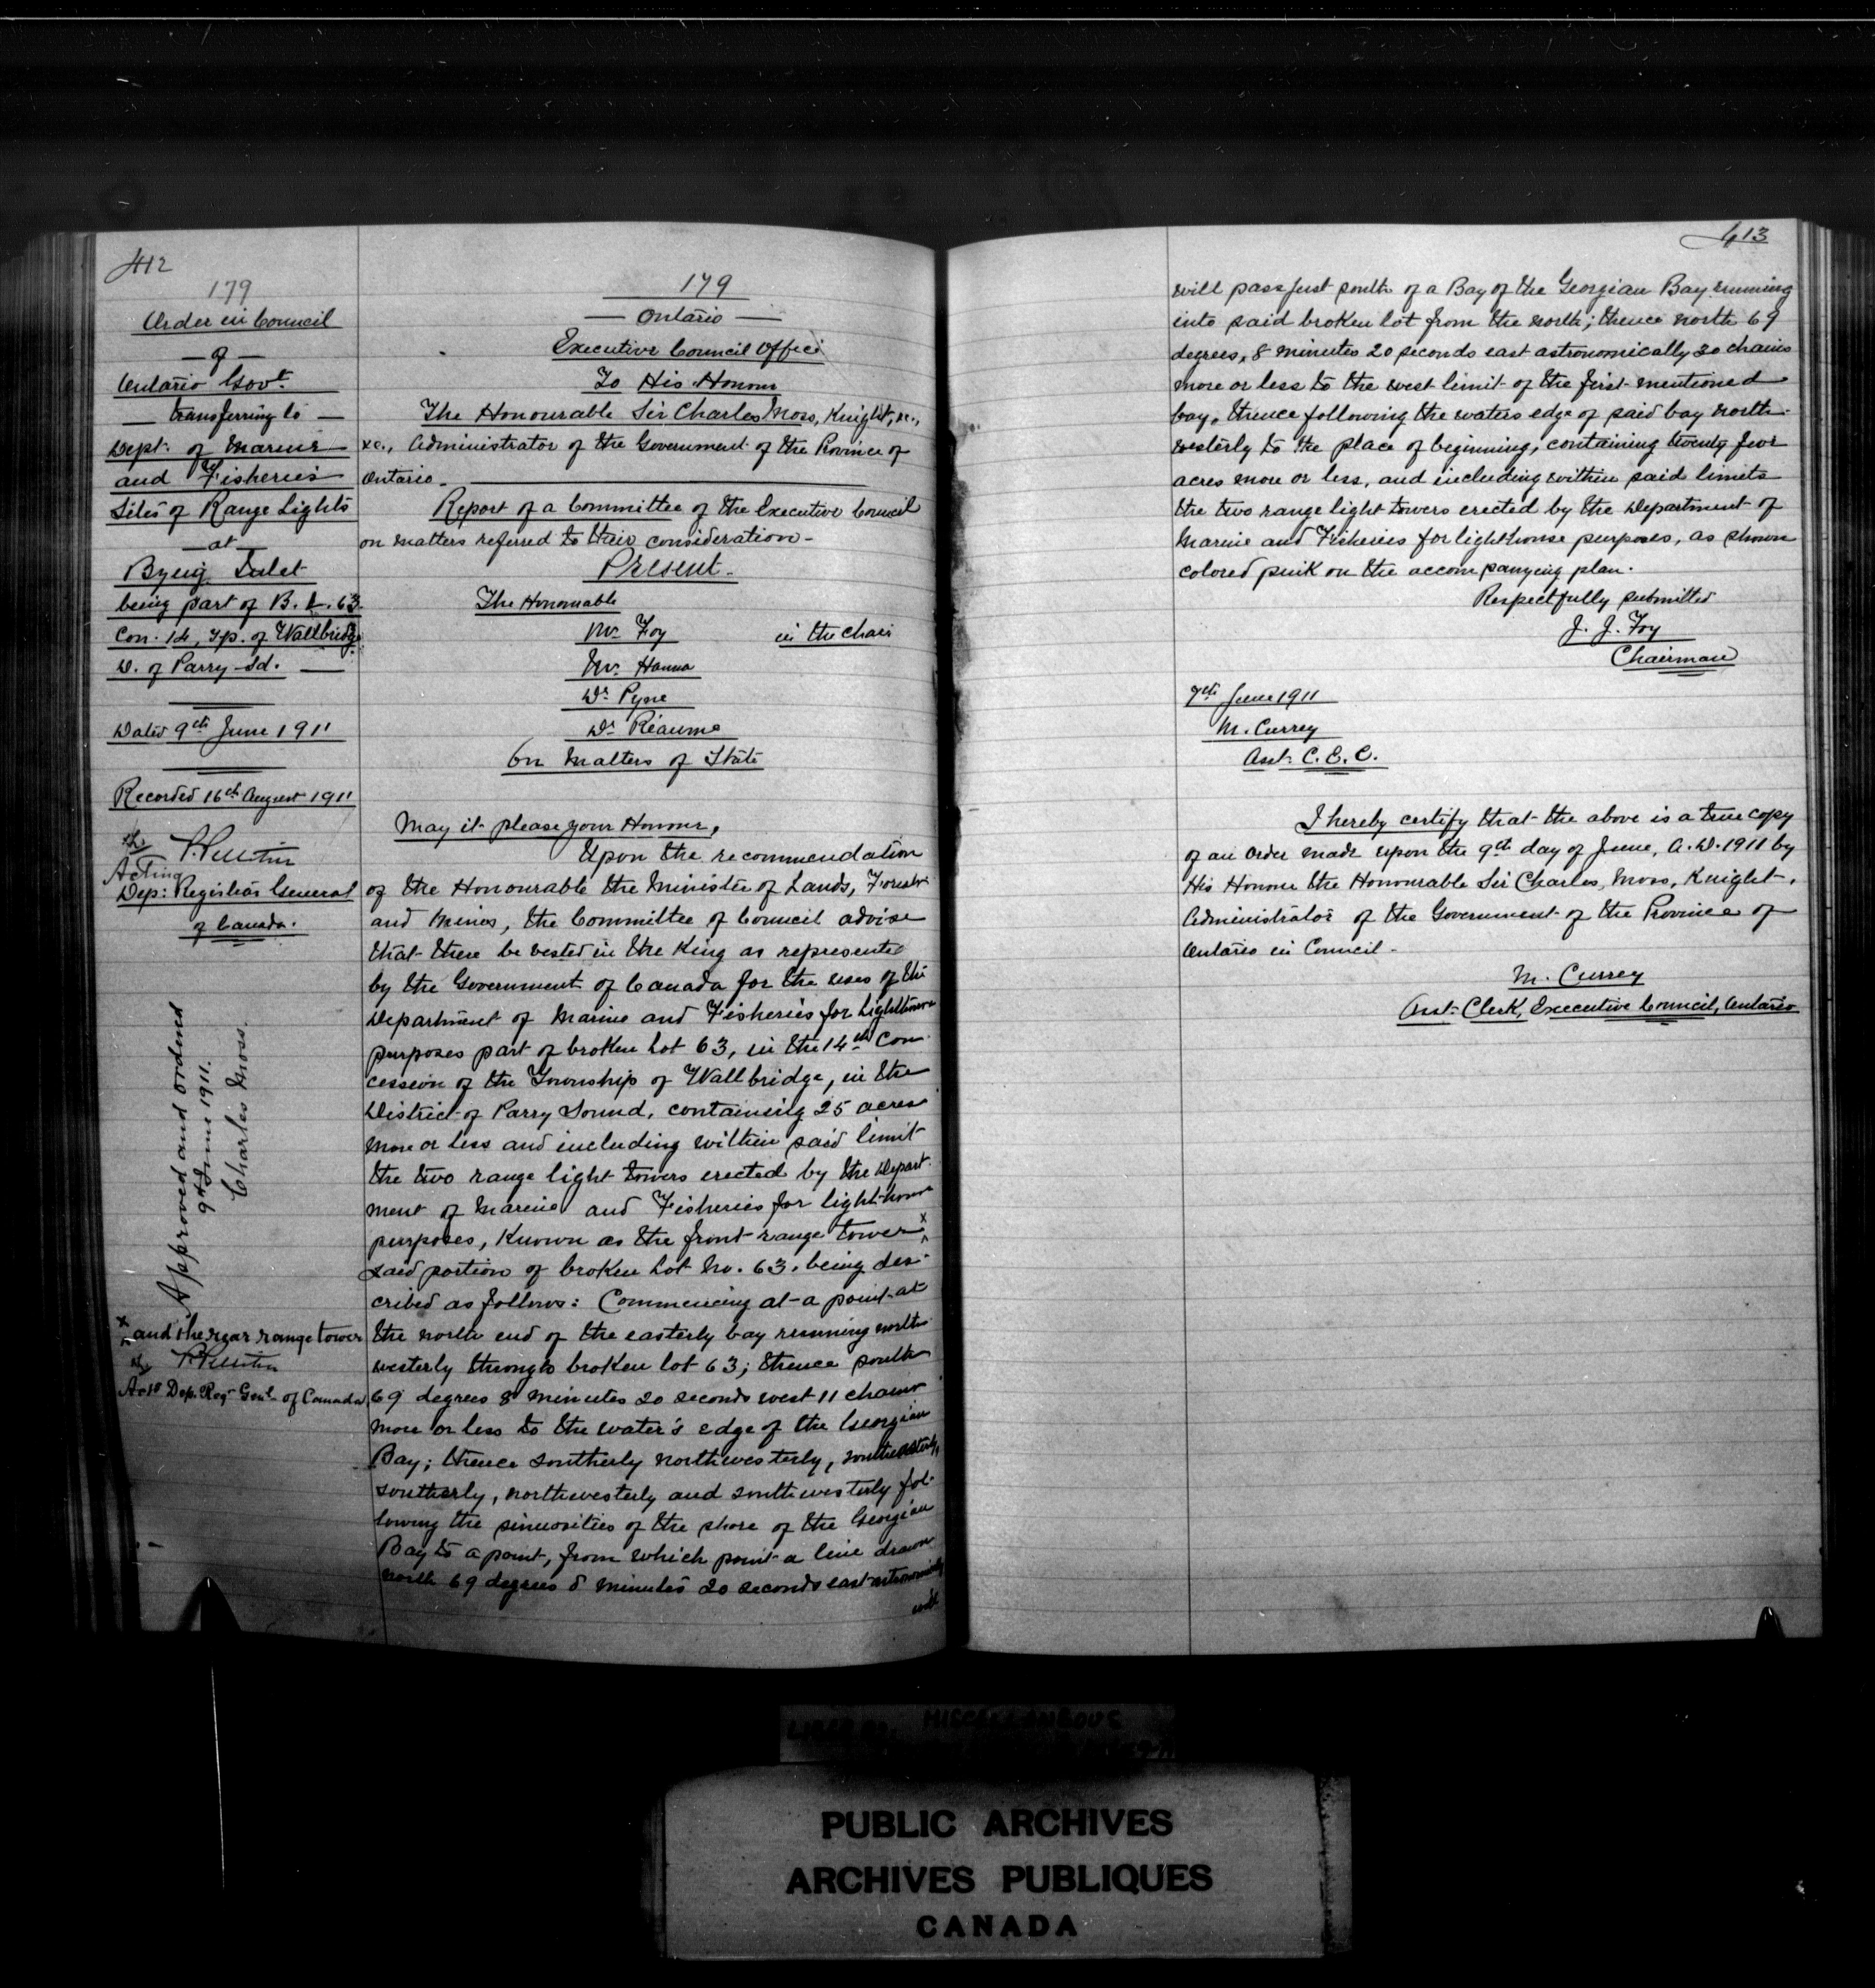 412
179
Order in Council
— of —
Ontario Govt.
— transferring to —
Dept. of Marine
and Fisheries
Sites of Range Lights
— at —
Byng Inlet
being part of B. L. 63.
Con. 14, Tp. of Wallbridge
D. of Parry Sd. —
Dated 9th June 1911
Recorded 16th August 1911
Acting
Dep: Registrar General
of Canada.
Approved and ordered
9th June 1911.
Charles Moss
x and the rear range tower
Actg Dep. Reg. Genl. of Canada
179
— Ontario —
Executive Council Office
To His Honour
The Honourable Sir Charles Moss, Knight, &c.,
&c., Administrator of the Government of the Province of
Ontario.
Report of a Committee of the Executive Council
on matters referred to their consideration—
Present—
The Honourable
Mr. Foy in the chair
Mr. Hanna
Dr. Pyne
Dr. Réaume
On Matters of State
May it please your Honour,
Upon the recommendation
of the Honourable the Minister of Lands, Forests
and Mines, the Committee of Council advise
that there be vested in the King as represented
by the Government of Canada for the uses of the
Department of Marine and Fisheries for Lighthouse
purposes part of broken Lot 63, in the 14th Con-
cession of the Township of Wallbridge, in the
District of Parry Sound, containing 25 acres
more or less and including within said limit
the two range light towers erected by the Depart-
ment of Marine and Fisheries for light-house
purposes, known as the front range tower x
said portion of broken Lot No. 63, being des-
cribed as follows: Commencing at a point at
the north end of the easterly bay running north
westerly through broken lot 63; thence south
69 degrees 8 minutes 20 seconds west 11 chains
more or less to the water's edge of the Georgian
Bay; thence southerly northwesterly, southeasterly,
southerly, northwesterly and southwesterly fol-
lowing the sinuosities of the shore of the Georgian
Bay to a point, from which point a line drawn
north 69 degrees 8 minutes 20 seconds east astronomically
will
413
will pass just south of a Bay of the Georgian Bay running
into said broken lot from the north; thence north 69
degrees, 8 minutes 20 seconds east astronomically 30 chains
more or less to the west limit of the first mentioned
bay, thence following the waters edge of said bay north-
westerly to the place of beginning, containing twenty five
acres more or less, and including within said limits
the two range light towers erected by the Department of
Marine and Fisheries for lighthouse purposes, as shown
colored pink on the accompanying plan.
Respectfully submitted
J. J. Foy
Chairman
7th June 1911
M. Currey
Asst. C. E. C.
I hereby certify that the above is a true copy
of an Order made upon the 9th day of June, A.D. 1911 by
His Honour the Honourable Sir Charles Moss, Knight,
Administrator of the Government of the Province of
Ontario in Council.
M. Currey
Asst. Clerk, Executive Council, Ontario
MISCELLANEOUS
PUBLIC ARCHIVES
ARCHIVES PUBLIQUES
CANADA